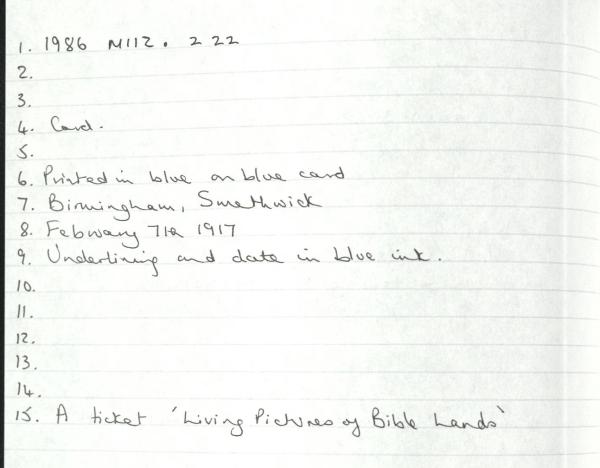 1. 1986 M112. 222
2.
3.
4. Card.
5.
6. Printed in blue on blue card
7. Birmingham, Smethwick
8. February 7th 1917
9. Underlining and date in blue ink.
10.
11.
12.
13.
14.
15. A ticket 'Living Pictures of Bible Lands'